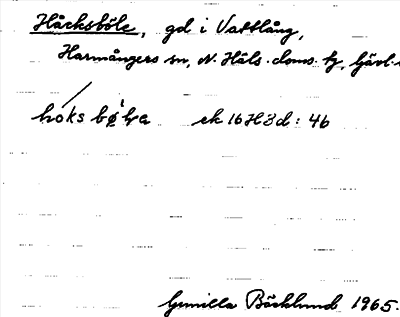 Håcksböle, gd i Vattlång,
Harmångers sn, N. Häls. doms. tg, Gävl.
hoks bø̀lɐ ek 16H3d: 46
Gunilla Bäcklund 1965.